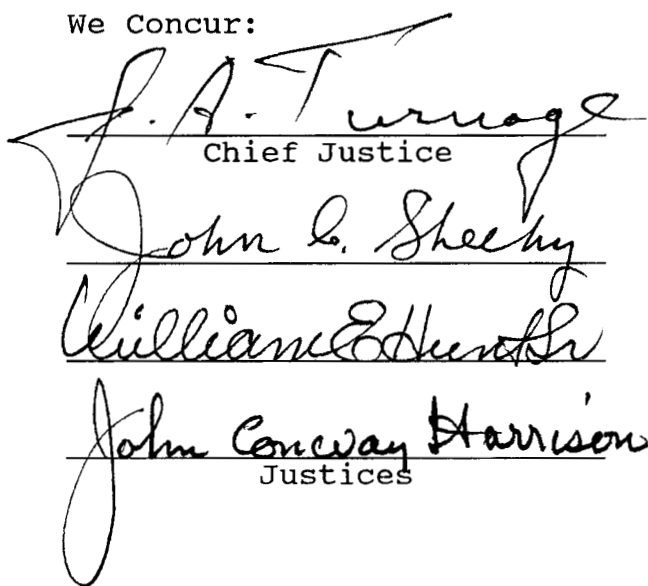 We Concur:
J. A. Turnage
Chief Justice
John C. Sheehy
William E Hunt Sr
John Conway Harrison
Justices